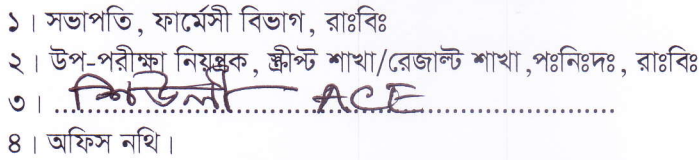 ১। সভাপতি, ফার্মেসী বিভাগ, রাঃবিঃ
২। উপ-পরীক্ষা নিয়ন্ত্রক, স্ক্রীপ্ট শাখা/রেজাল্ট শাখা ,পঃনিঃদঃ, রাঃবিঃ
৩। শিউলী ACE
৪। অফিস নথি।